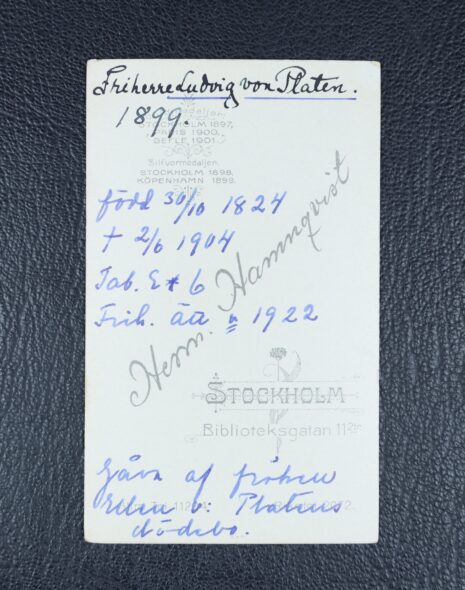 Friherre Ludvig von Platen.
1899.
STOCKHOLM 1897,
PARIS 1900,
GEFLE 1901.
Silfvermedaljen.
STOCKHOLM 1898,
KÖPENHAMN 1899.
född 30/10 1824
† 2/6 1904
Tab. E * 6
Frih. ätt n 1922
Herrm. Hamnqvist
STOCKHOLM
Biblioteksgatan 11
Gåva af fröken
Ellen v. Platens
dödsbo.